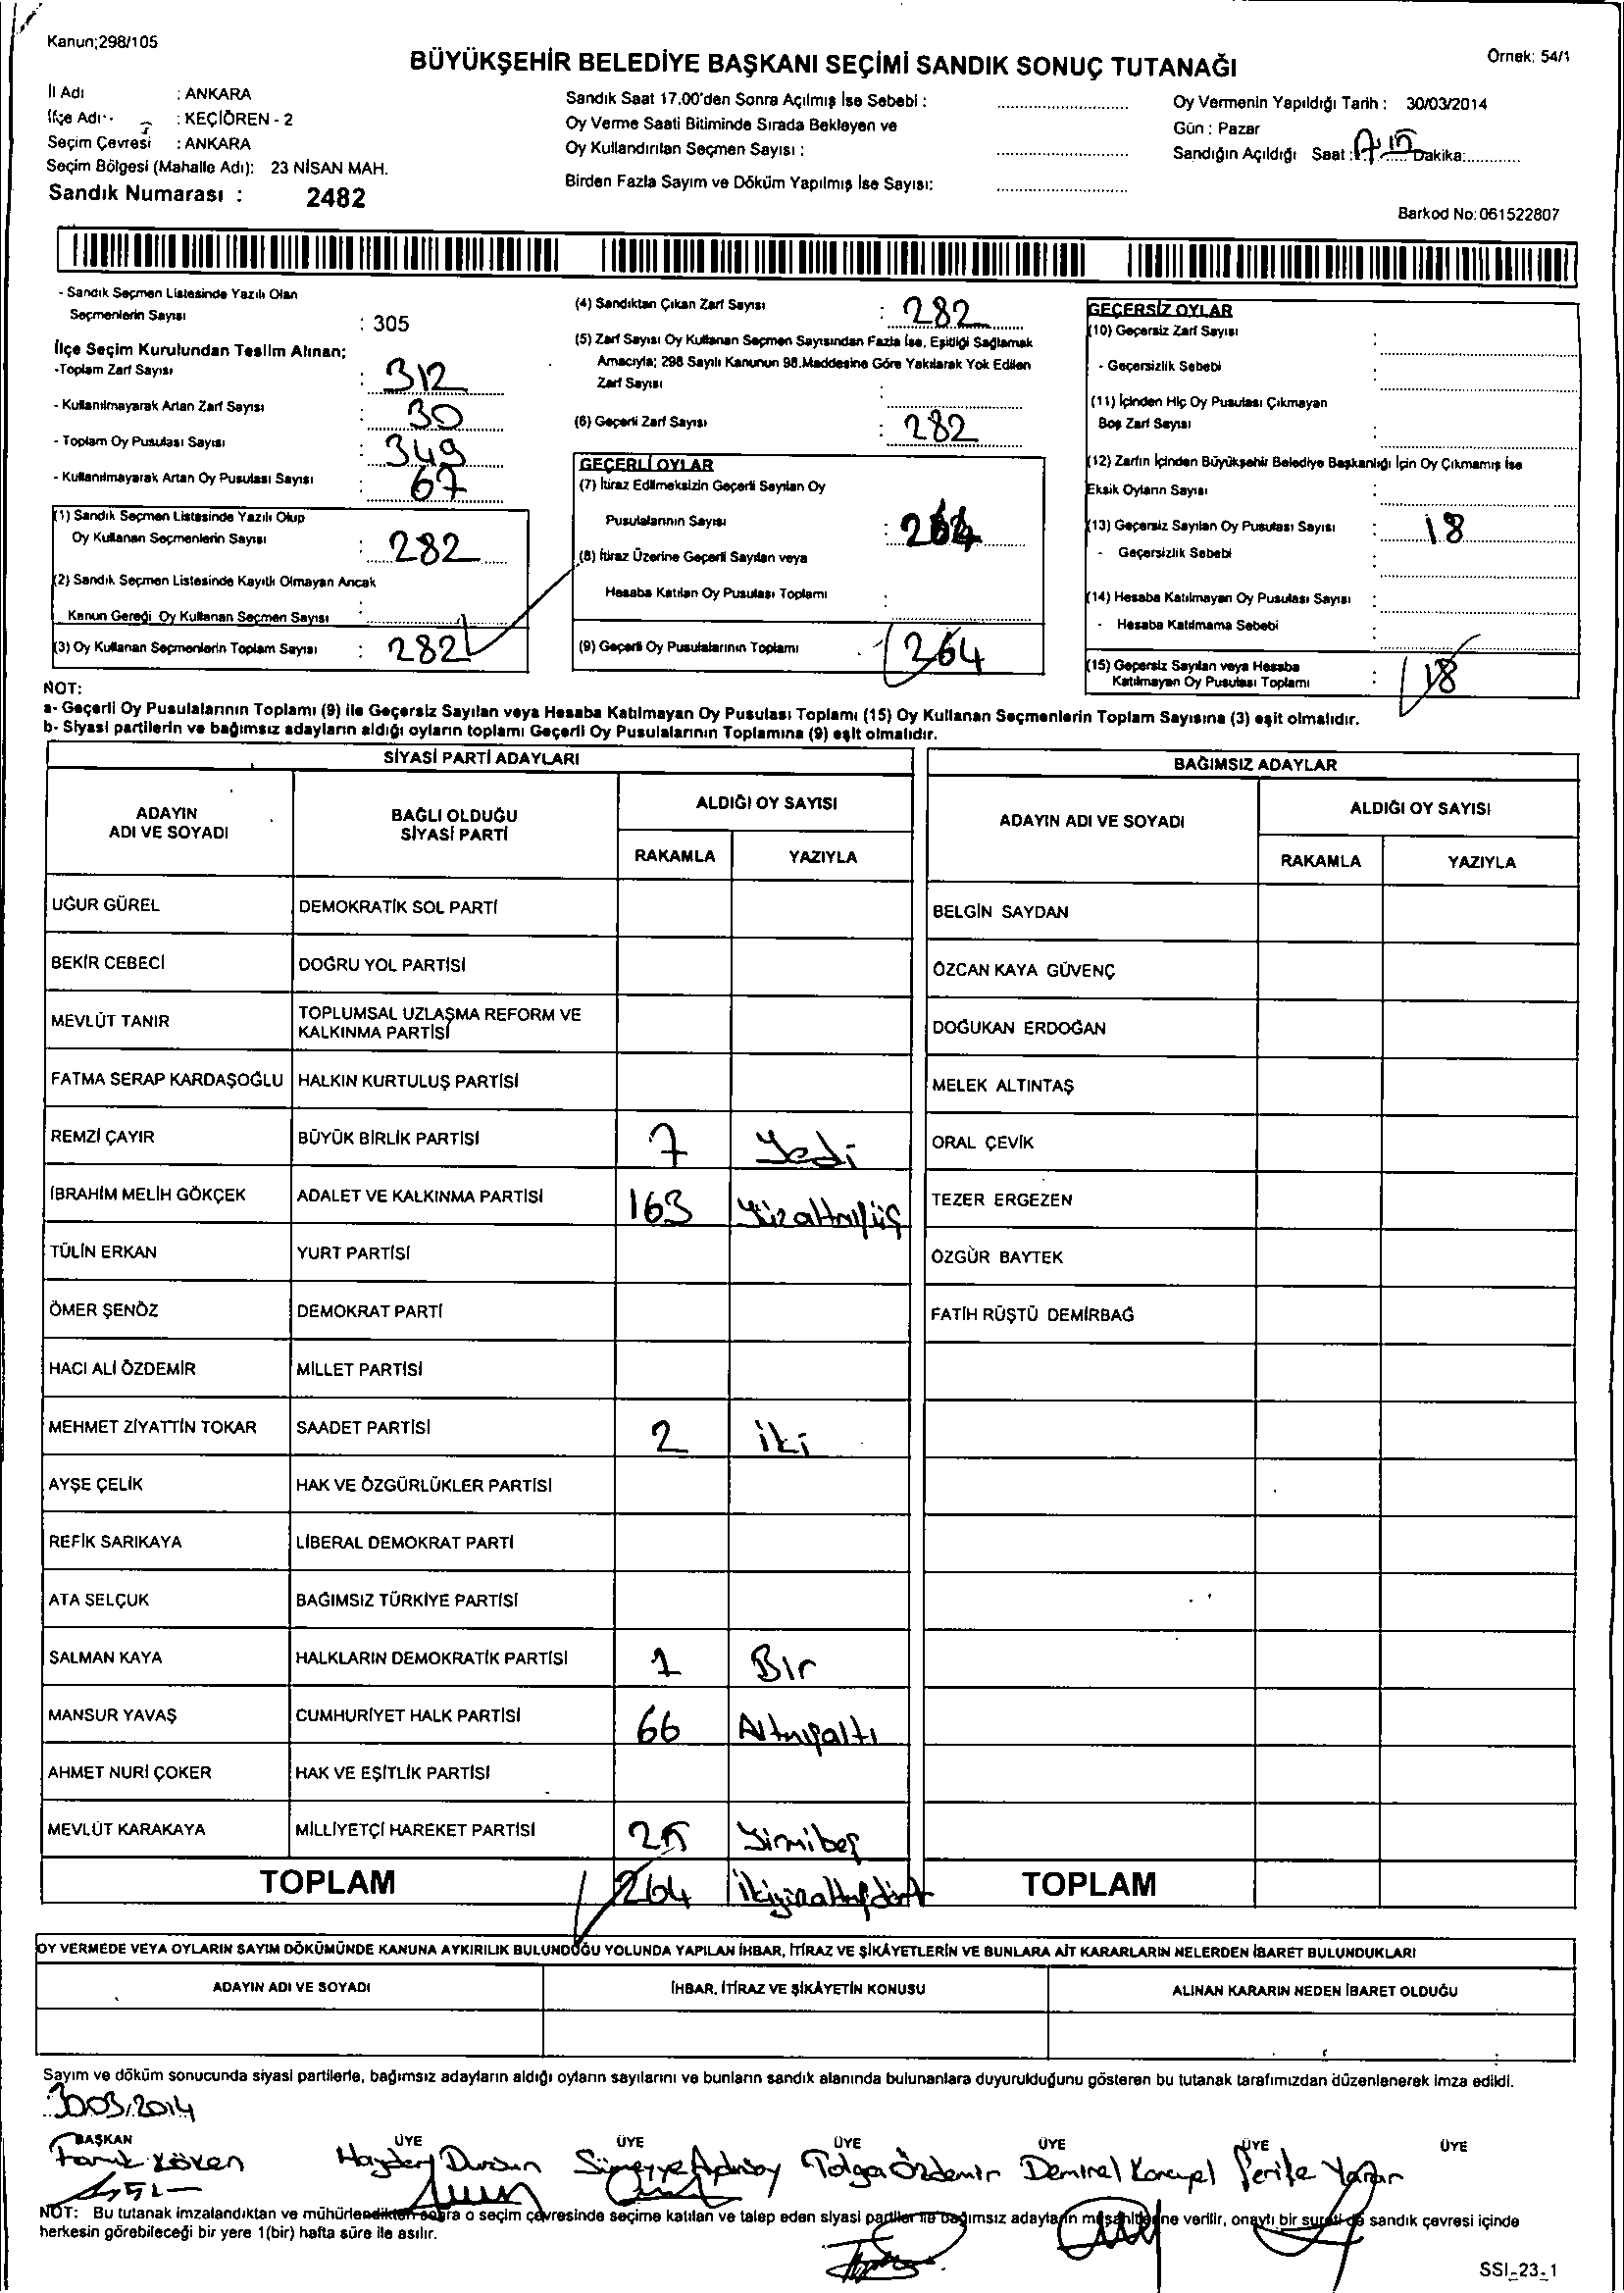 Kanun;298/105
BÜYÜKŞEHİR BELEDİYE BAŞKANI SEÇİMİ SANDIK SONUÇ TUTANAĞI
Örnek: 54/1
İl Adı : ANKARA
İlçe Adı : KEÇİÖREN - 2
Seçim Çevresi : ANKARA
Seçim Bölgesi (Mahalle Adı): 23 NİSAN MAH.
Sandık Numarası : 2482
Sandık Saat 17.00'den Sonra Açılmış İse Sebebi :
Oy Verme Saati Bitiminde Sırada Bekleyen ve
Oy Kullandırılan Seçmen Sayısı :
Birden Fazla Sayım ve Döküm Yapılmış İse Sayısı:
Oy Vermenin Yapıldığı Tarih : 30/03/2014
Gün : Pazar
Sandığın Açıldığı Saat : Dakika:
Barkod No:061522807
- Sandık Seçmen Listesinde Yazılı Olan
Seçmenlerin Sayısı : 305
İlçe Seçim Kurulundan Teslim Alınan;
-Toplam Zarf Sayısı : 312
- Kullanılmayarak Artan Zarf Sayısı : 30
- Toplam Oy Pusulası Sayısı : 349
- Kullanılmayarak Artan Oy Pusulası Sayısı : 67
(1) Sandık Seçmen Listesinde Yazılı Olup
Oy Kullanan Seçmenlerin Sayısı : 282
(2) Sandık Seçmen Listesinde Kayıtlı Olmayan Ancak
Kanun Gereği Oy Kullanan Seçmen Sayısı :
(3) Oy Kullanan Seçmenlerin Toplam Sayısı : 282
(4) Sandıktan Çıkan Zarf Sayısı : 282
(5) Zarf Sayısı Oy Kullanan Seçmen Sayısından Fazla İse, Eşitliği Sağlamak
Amacıyla; 298 Sayılı Kanunun 98.Maddesine Göre Yakılarak Yok Edilen
Zarf Sayısı :
(6) Geçerli Zarf Sayısı : 282
GEÇERLİ OYLAR
(7) İtiraz Edilmeksizin Geçerli Sayılan Oy
Pusulalarının Sayısı : 264
(8) İtiraz Üzerine Geçerli Sayılan veya
Hesaba Katılan Oy Pusulası Toplamı :
(9) Geçerli Oy Pusulalarının Toplamı : 264
GEÇERSİZ OYLAR
(10) Geçersiz Zarf Sayısı :
- Geçersizlik Sebebi :
(11) İçinden Hiç Oy Pusulası Çıkmayan
Boş Zarf Sayısı :
(12) Zarfın İçinden Büyükşehir Belediye Başkanlığı İçin Oy Çıkmamış İse
Eksik Oyların Sayısı :
(13) Geçersiz Sayılan Oy Pusulası Sayısı : 18
- Geçersizlik Sebebi :
(14) Hesaba Katılmayan Oy Pusulası Sayısı :
- Hesaba Katılmama Sebebi :
(15) Geçersiz Sayılan veya Hesaba
Katılmayan Oy Pusulası Toplamı : 18
NOT:
a- Geçerli Oy Pusulalarının Toplamı (9) ile Geçersiz Sayılan veya Hesaba Katılmayan Oy Pusulası Toplamı (15) Oy Kullanan Seçmenlerin Toplam Sayısına (3) eşit olmalıdır.
b- Siyasi partilerin ve bağımsız adayların aldığı oyların toplamı Geçerli Oy Pusulalarının Toplamına (9) eşit olmalıdır.
SİYASİ PARTİ ADAYLARI
BAĞIMSIZ ADAYLAR
ADAYIN ADI VE SOYADI
BAĞLI OLDUĞU SİYASİ PARTİ
ALDIĞI OY SAYISI
RAKAMLA YAZIYLA
ADAYIN ADI VE SOYADI
ALDIĞI OY SAYISI
RAKAMLA YAZIYLA
UĞUR GÜREL DEMOKRATİK SOL PARTİ BELGİN SAYDAN
BEKİR CEBECİ DOĞRU YOL PARTİSİ ÖZCAN KAYA GÜVENÇ
MEVLÜT TANIR TOPLUMSAL UZLAŞMA REFORM VE KALKINMA PARTİSİ DOĞUKAN ERDOĞAN
FATMA SERAP KARDAŞOĞLU HALKIN KURTULUŞ PARTİSİ MELEK ALTINTAŞ
REMZİ ÇAYIR BÜYÜK BİRLİK PARTİSİ 7 Yedi ORAL ÇEVİK
İBRAHİM MELİH GÖKÇEK ADALET VE KALKINMA PARTİSİ 163 Yüzaltmışüç TEZER ERGEZEN
TÜLİN ERKAN YURT PARTİSİ ÖZGÜR BAYTEK
ÖMER ŞENÖZ DEMOKRAT PARTİ FATİH RÜŞTÜ DEMİRBAĞ
HACI ALİ ÖZDEMİR MİLLET PARTİSİ
MEHMET ZİYATTİN TOKAR SAADET PARTİSİ 2 iki
AYŞE ÇELİK HAK VE ÖZGÜRLÜKLER PARTİSİ
REFİK SARIKAYA LİBERAL DEMOKRAT PARTİ
ATA SELÇUK BAĞIMSIZ TÜRKİYE PARTİSİ
SALMAN KAYA HALKLARIN DEMOKRATİK PARTİSİ 1 Bir
MANSUR YAVAŞ CUMHURİYET HALK PARTİSİ 66 Altmışaltı
AHMET NURİ ÇOKER HAK VE EŞİTLİK PARTİSİ
MEVLÜT KARAKAYA MİLLİYETÇİ HAREKET PARTİSİ 25 Yirmibeş
TOPLAM 264 İkiyüzaltmışdört TOPLAM
OY VERMEDE VEYA OYLARIN SAYIM DÖKÜMÜNDE KANUNA AYKIRILIK BULUNDUĞU YOLUNDA YAPILAN İHBAR, İTİRAZ VE ŞİKÂYETLERİN VE BUNLARA AİT KARARLARIN NELERDEN İBARET BULUNDUKLARI
ADAYIN ADI VE SOYADI İHBAR, İTİRAZ VE ŞİKÂYETİN KONUSU ALINAN KARARIN NEDEN İBARET OLDUĞU
Sayım ve döküm sonucunda siyasi partilerle, bağımsız adayların aldığı oyların sayılarını ve bunların sandık alanında bulunanlara duyurulduğunu gösteren bu tutanak tarafımızdan düzenlenerek imza edildi.
30.03.2014
BAŞKAN ÜYE ÜYE ÜYE ÜYE ÜYE ÜYE
Dursun Tolga Özdemir Demirel Şerife
NOT: Bu tutanak imzalandıktan ve mühürlendikten sonra o seçim çevresinde seçime katılan ve talep eden siyasi partiler ile bağımsız adayların müşahitlerine verilir, onaylı bir sureti de sandık çevresi içinde
herkesin görebileceği bir yere 1(bir) hafta süre ile asılır.
SSI_23_1